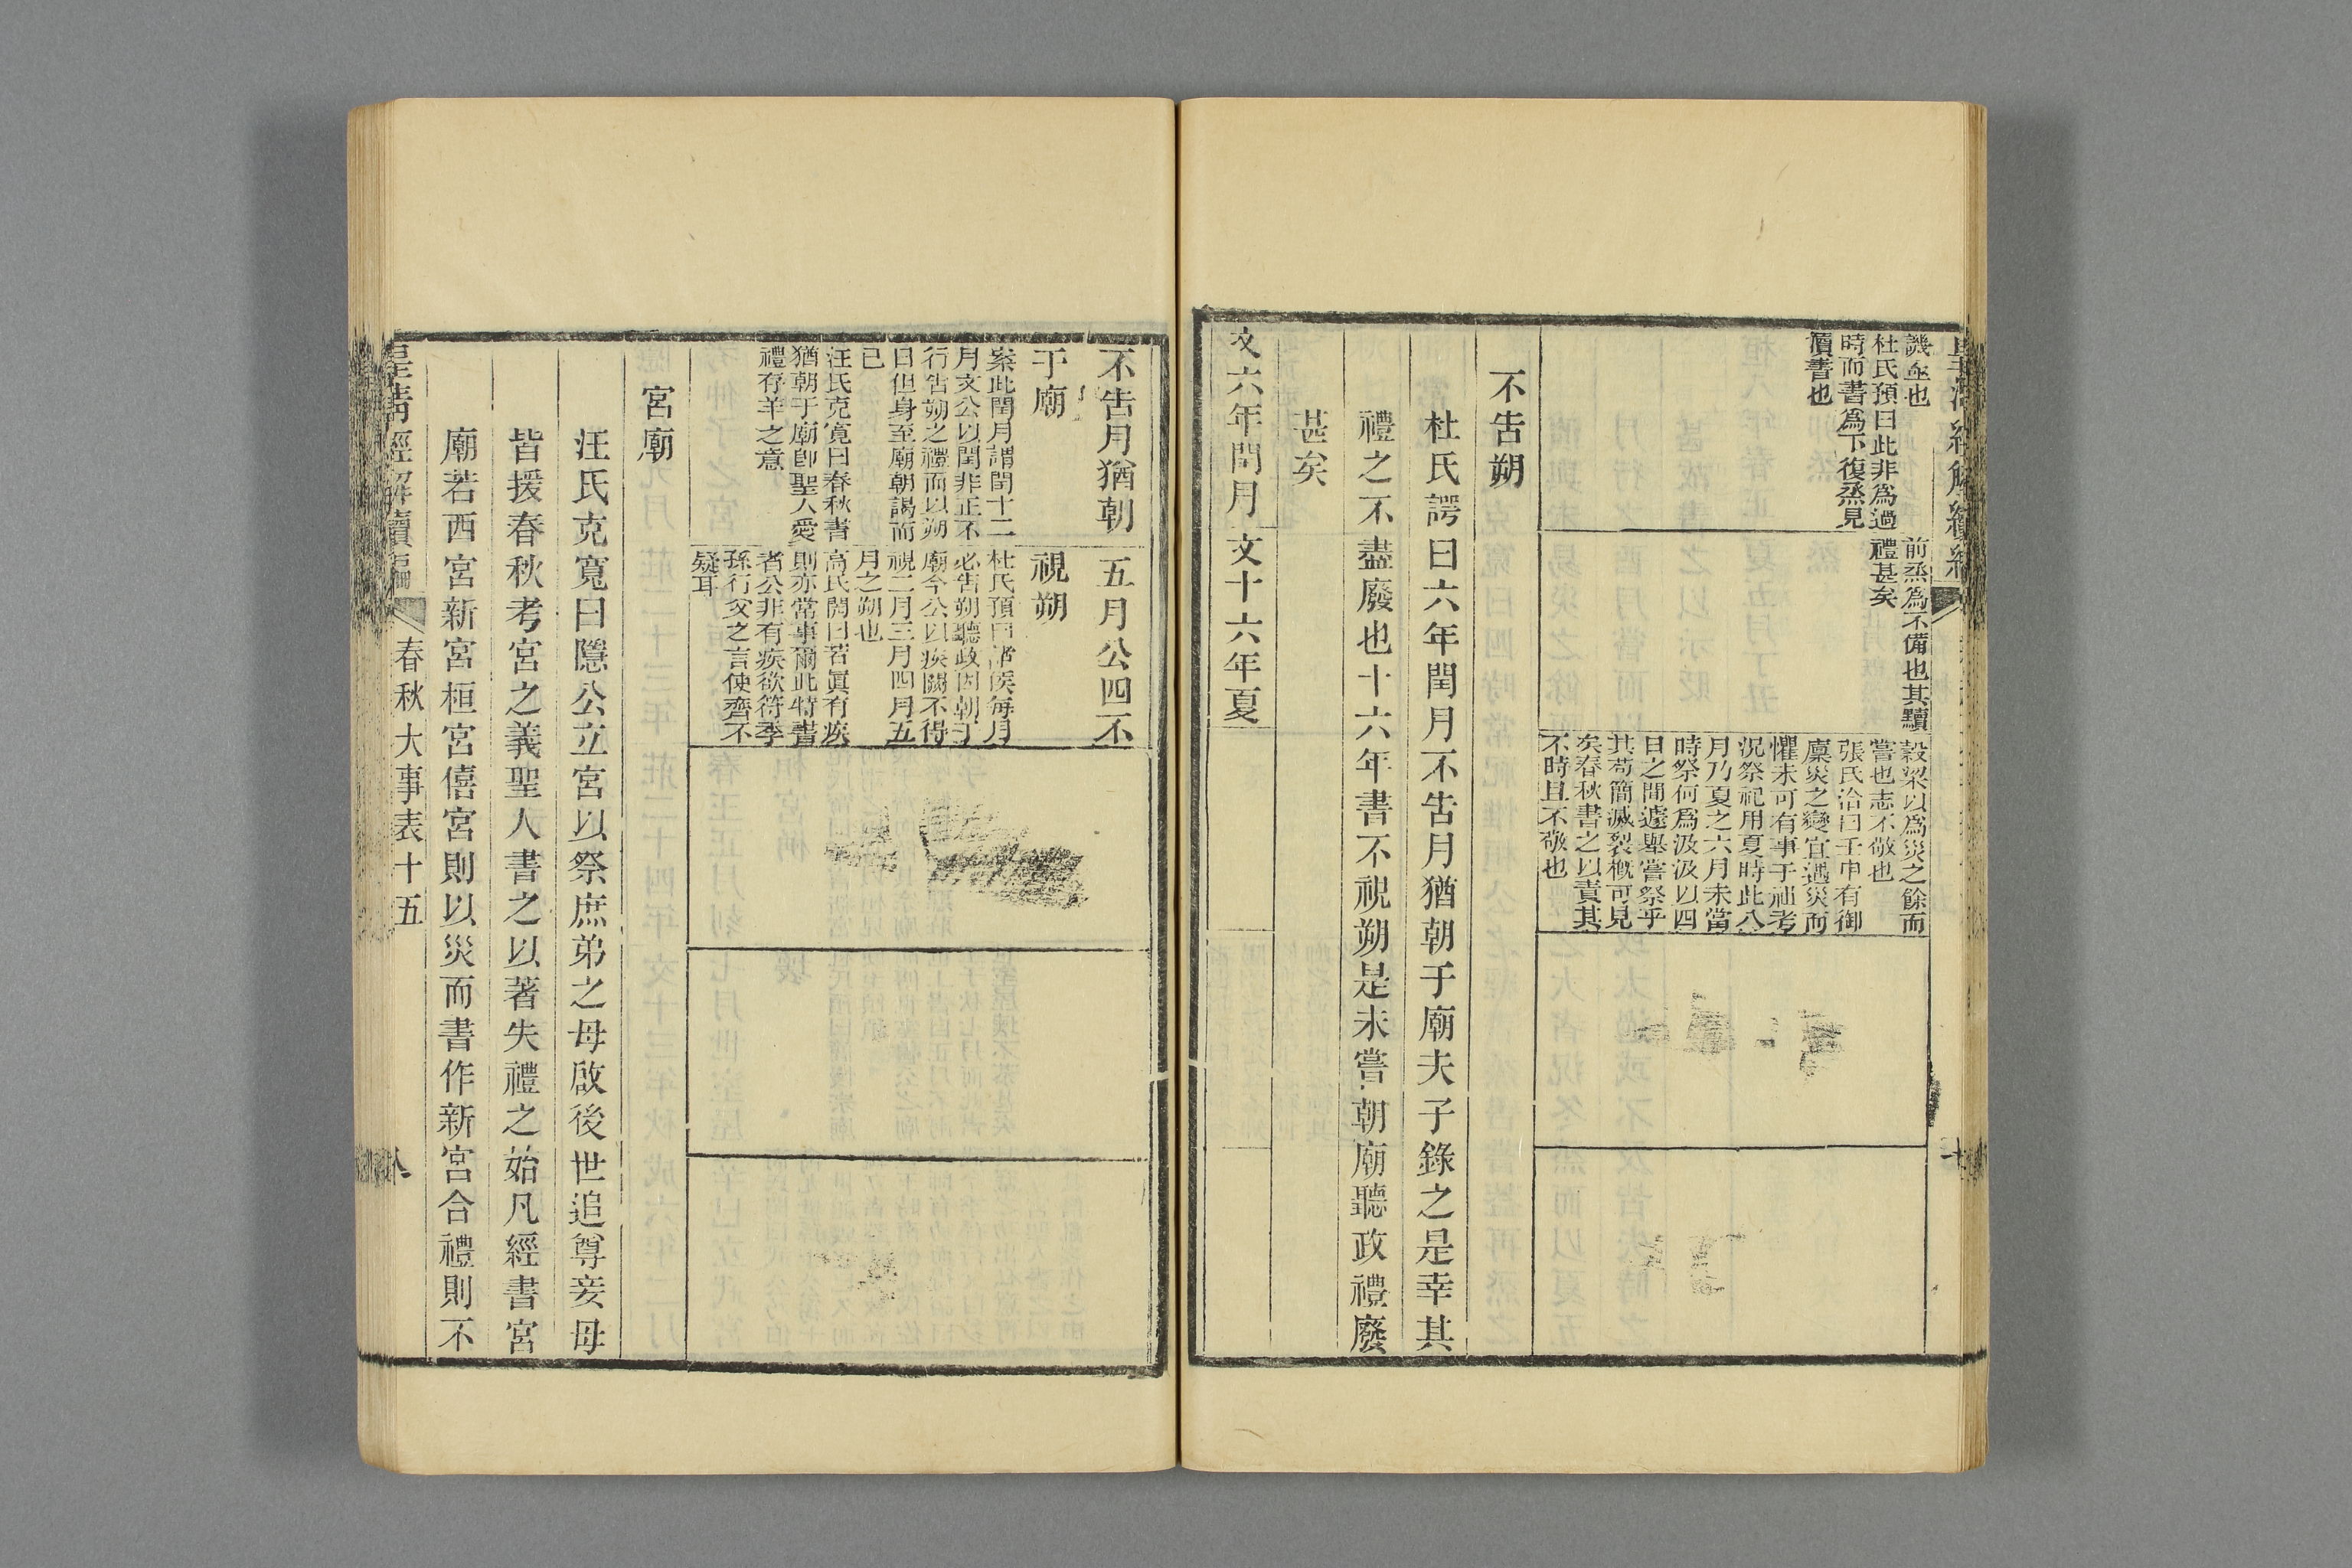 皇清經解續編
譏亟也
杜氏預曰此非為過
時而書為下復烝見
瀆書也
前烝為不備也其黷
禮甚矣
穀梁以為災之餘而
嘗也志不敬也
張氏洽曰壬申有御
廩災之變宜遇災而
懼未可有事于祖考
況祭祀用夏時此八
月乃夏之六月未當
時祭何為汲汲以四
日之間遽舉嘗祭乎
其苟簡滅裂概可見
矣春秋書之以責其
不時且不敬也
不告朔
杜氏諤曰六年閏月不告月猶朝于廟夫子錄之是幸其
禮之不盡廢也十六年書不視朔是未嘗朝廟聽政禮廢
甚矣
文六年閏月
文十六年夏
不告月猶朝
于廟
案此閏月謂閏十二
月文公以閏非正不
行告朔之禮而以朔
日但身至廟朝謁而
已
汪氏克寬曰春秋書
猶朝于廟卽聖人愛
禮存羊之意
五月公四不
視朔
杜氏預曰諸侯每月
必告朔聽政因朝于
廟今公以疾闕不得
視二月三月四月五
月之朔也
高氏閌曰若眞有疾
則亦常事爾此特書
者公非有疾欲符季
孫行父之言使齊不
疑耳
宮廟
汪氏克寬曰隱公立宮以祭庶弟之母啟後世追尊妾母
皆援春秋考宮之義聖人書之以著失禮之始凡經書宮
廟若西宮新宮桓宮僖宮則以災而書作新宮合禮則不
皇清經解續編
春秋大事表十五